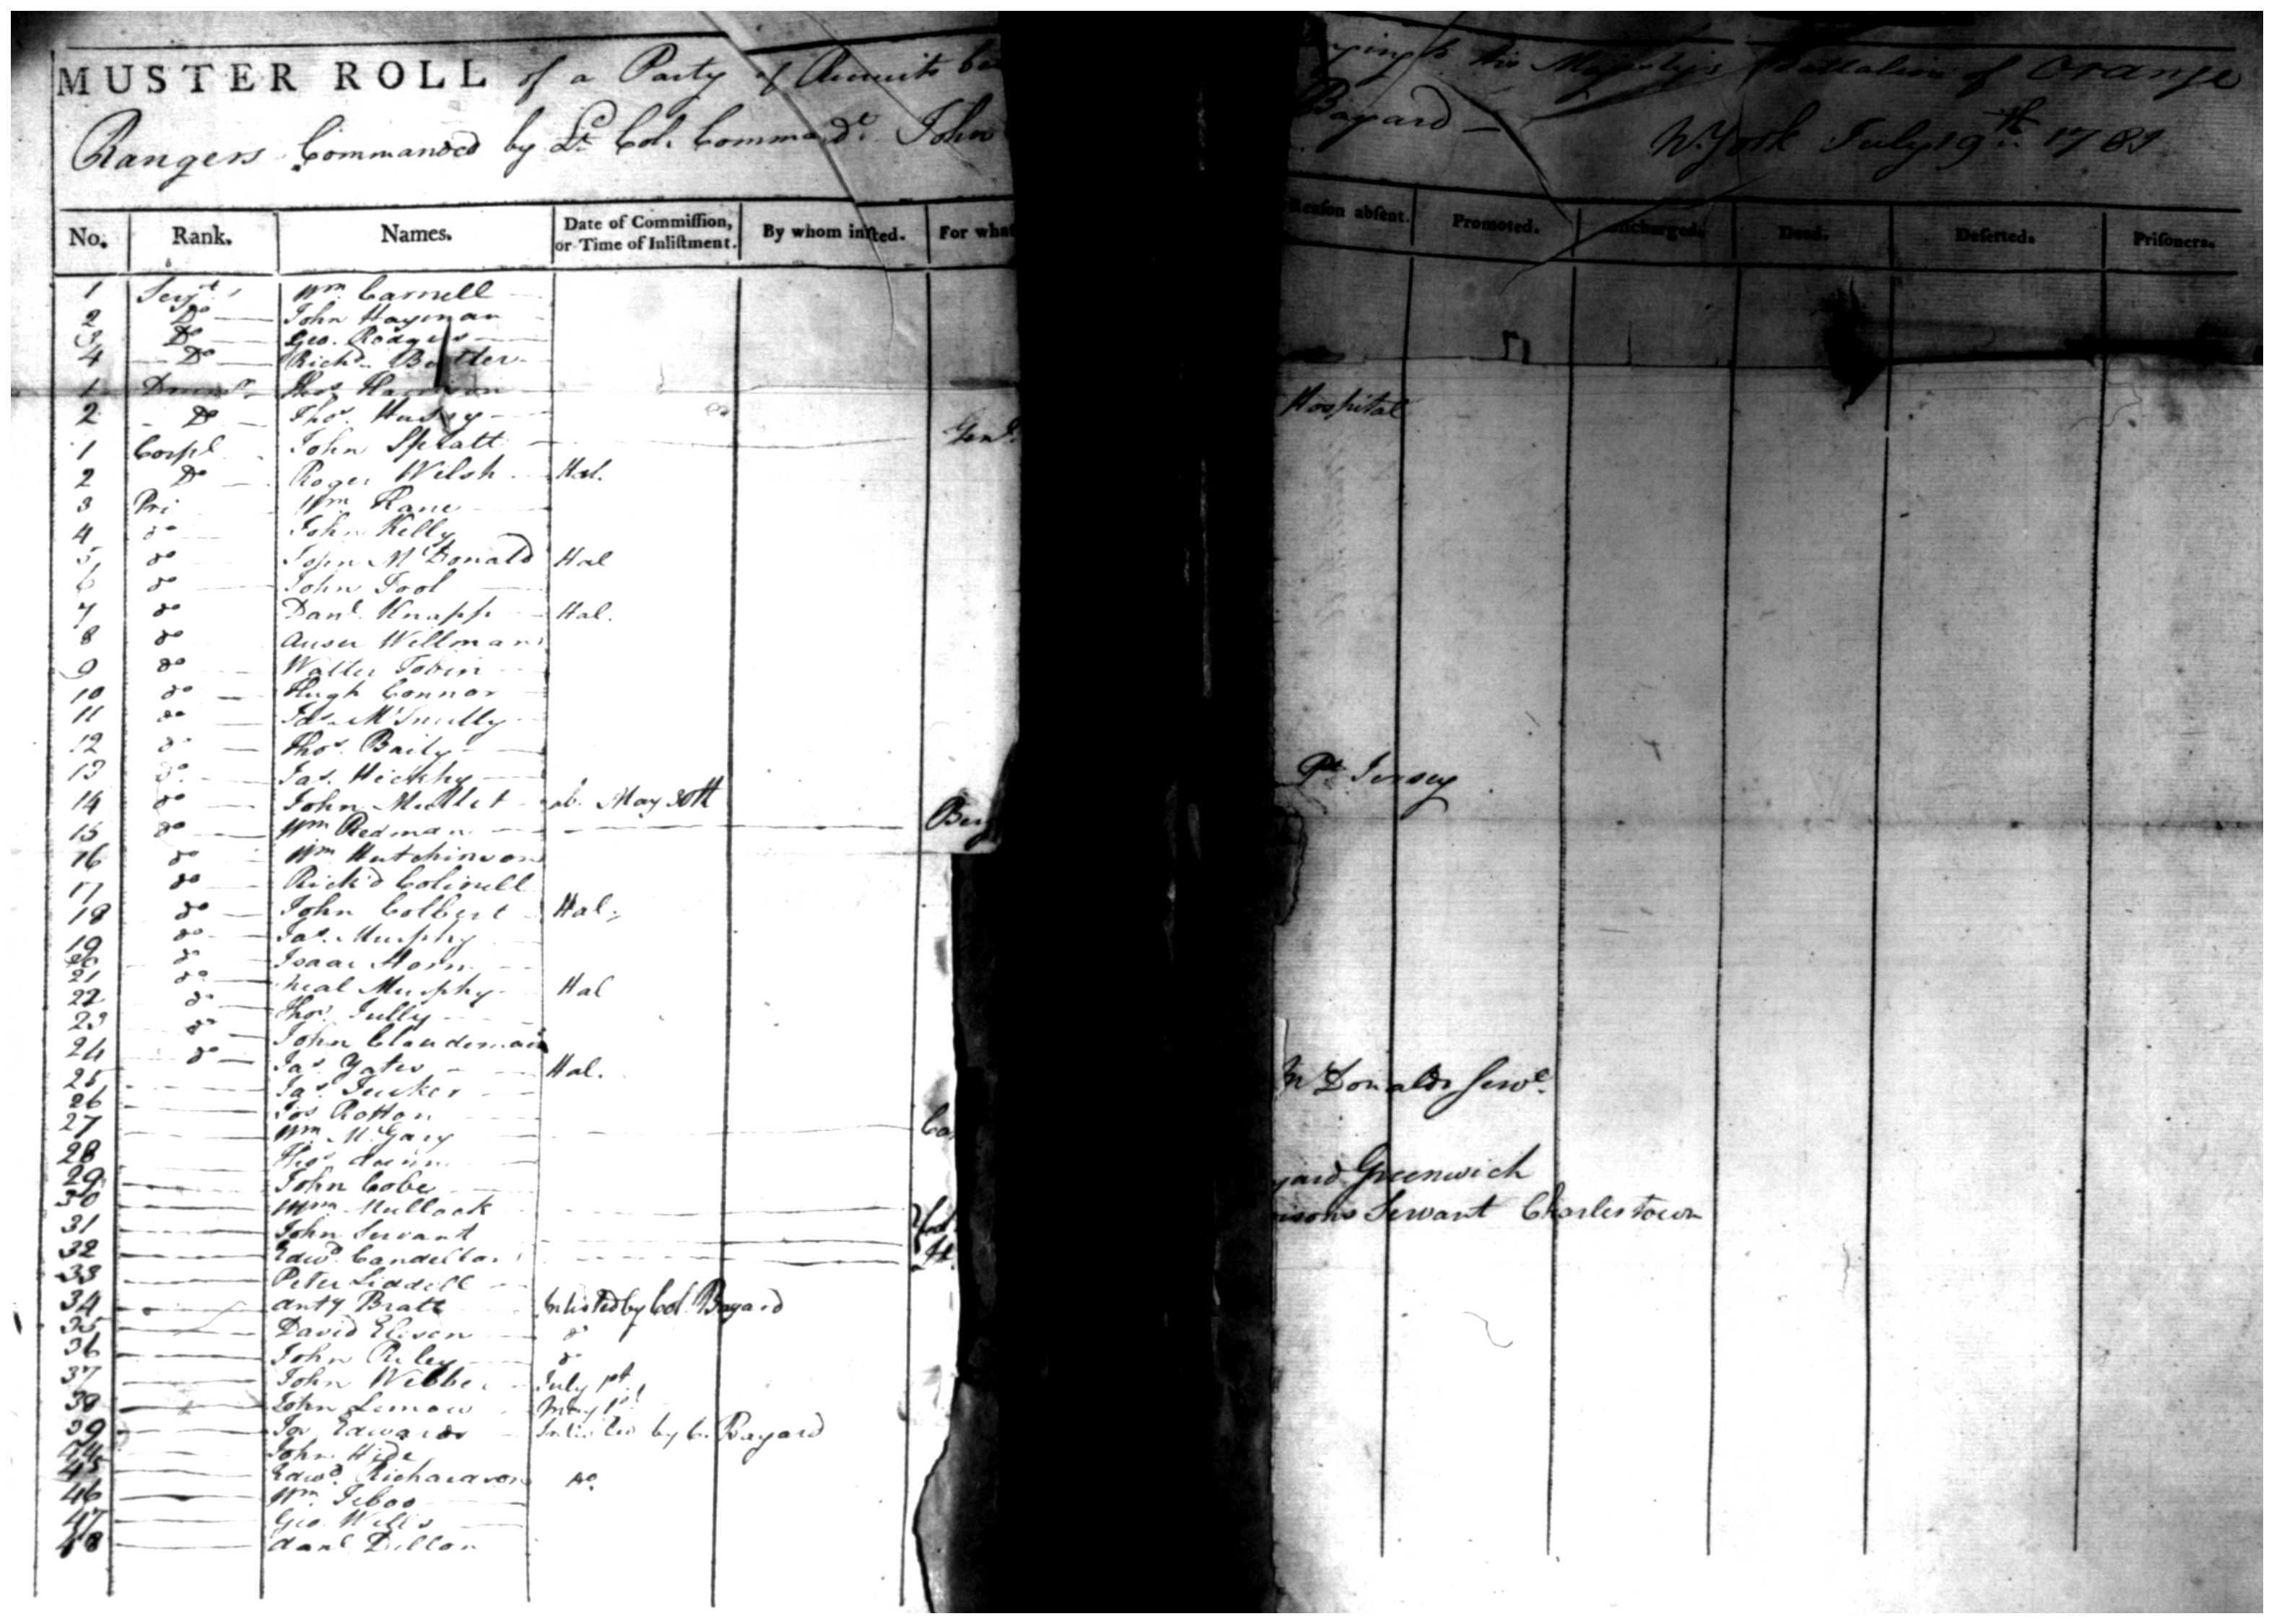 MUSTER ROLL of a Party of Recruits be ging to his Majesty's Battalion of Orange
Rangers Commanded by Lt Col. Commandt. John Bayard — N. York July 19th 1781
No. Rank. Names. Date of Commission, or Time of Inlistment. By whom inlisted. For what Reason absent. Promoted. Discharged. Dead. Deserted. Prisoners.
1 Serjt. Wm Carnell
2 Do John Hayman
3 Do Geo. Rodgers
4 Do Richd. Butler
1 Drumr. Thos Harrison
2 Do Thos. Hussy Hospital
1 Corpl John Spratt Genl.
2 Do Roger Welsh Hal.
3 Pri Wm Kane
4 do John Kelly
5 do John McDonald Hal
6 do John Tool
7 do Danl. Knapp Hal.
8 do Willman
9 do Walter Tobin
10 do Hugh Connor
11 do Jas.
12 do Thos. Baily
13 do Jas. Hickhy
14 do John Mullet May 30th Pt. Jersey
15 do Wm Redman Ber
16 do Wm Hutchinson
17 do Richd
18 do John Colbert Hal.
19 do Jas. Murphy
20 do Isaac Horn
21 do Neal Murphy Hal
22 do Thos. Tully
23 do John
24 do Jas. Yates Hal.
25 Jas. Tucker McDonalds Servt.
26 Jos Rotton
27 Wm. McGary Ca
28 Thos dunn yard Greenwich
29 John Cobe
30 Wm Mullock isons Servant Charlestown
31 John Servant
32 Edwd.
33 Peter Liddell
34 Anty Bratt Inlisted by Col. Bayard
35 David Elison do
36 John Riley do
37 John Webber July 1st
38 John Lemow May 1st
39 Jos Edwards Inlisted by C. Bayard
44 John Hide
45 Edwd. Richardson Do.
46 Wm.
47 Geo. Wells
48 Danl Dillon